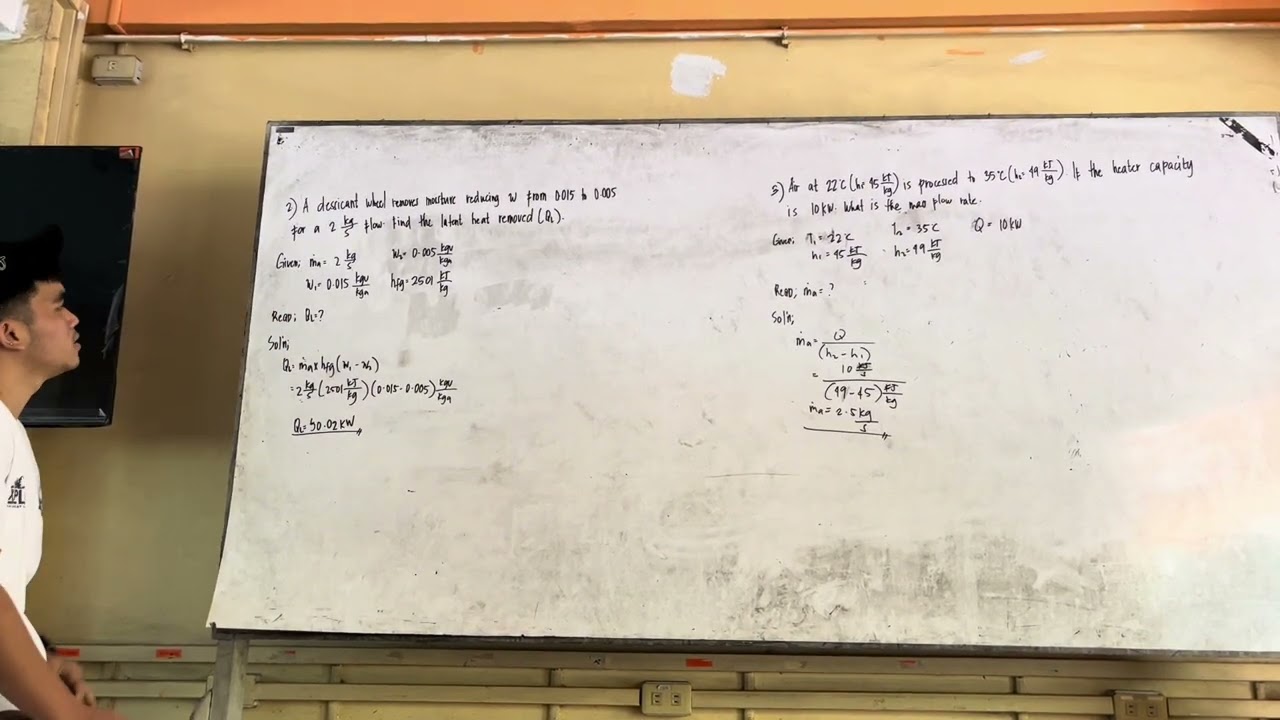 2) A dessicant wheel removes moisture reducing w from 0.015 to 0.005
for a 2 kg/s flow. Find the latent heat removed (QL).
Given; ṁa = 2 kg/s W2 = 0.005 kgv/kga
W1 = 0.015 kgv/kga hfg = 2501 kJ/kg
Reqd; QL = ?
Sol'n;
QL = ṁa x hfg (W1 - W2)
= 2 kg/s (2501 kJ/kg) (0.015 - 0.005) kgv/kga
QL = 50.02 kW
3) Air at 22°C (h = 45 kJ/kg) is processed to 35°C (h = 49 kJ/kg). If the heater capacity
is 10 kW. What is the mass flow rate.
Given; T1 = 22°C T2 = 35°C Q = 10 kW
h1 = 45 kJ/kg h2 = 49 kJ/kg
Reqd; ṁa = ?
Sol'n;
ṁa = Q/(h2 - h1)
= 10 kJ/s / (49 - 45) kJ/kg
ṁa = 2.5 kg/s